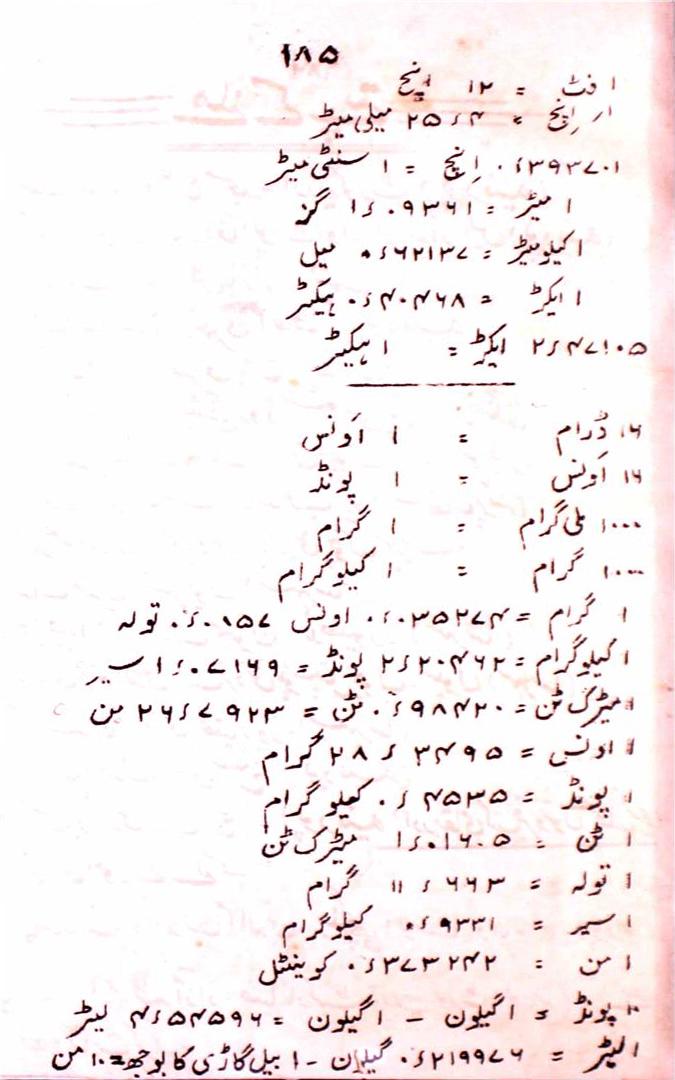 ۱۸۵
۱ فٹ = ۱۲ انچ
۱ انچ = ۲۵ء۴ میلی میٹر
۰ء۳۹۳۷۰۱ انچ = ۱ سنٹی میٹر
۱ میٹر = ۱ء۰۹۳۶۱ گز
۱ کیلومیٹر = ۰ء۶۲۱۳۷ میل
۱ ایکڑ = ۰ء۴۰۴۶۸ ہیکٹر
۲ء۴۷۱۰۵ ایکڑ = ۱ ہیکٹر
۱۶ ڈرام = ۱ اَونس
۱۶ اَونس = ۱ پونڈ
۱۰۰۰ ملی گرام = ۱ گرام
۱۰۰۰ گرام = ۱ کیلوگرام
۱ گرام = ۰ء۰۳۵۲۷۴ اونس ۰ء۰۸۵۷ تولہ
۱ کیلوگرام = ۲ء۲۰۴۶۲ پونڈ = ۱ء۰۷۱۶۹ سیر
۱ میٹرک ٹن = ۰ء۹۸۴۲۰ ٹن = ۲۶ء۷۹۲۳ من
۱ اونس = ۲۸ء۳۴۹۵ گرام
۱ پونڈ = ۰ء۴۵۳۵ کیلو گرام
۱ ٹن = ۱ء۰۱۶۰۵ میٹرک ٹن
۱ تولہ = ۱۱ء۶۶۳ گرام
۱ سیر = ۰ء۹۳۳۱ کیلوگرام
۱ من = ۰ء۳۷۳۲۴۲ کوینٹل
پونڈ = ۱ گیلون - ۱ گیلون = ۴ء۵۴۵۹۶ لیٹر
۱ لیٹر = ۰ء۲۱۹۹۷۶ گیلان - ۱ بیل گاڑی کا بوجھ = ۱۰ من